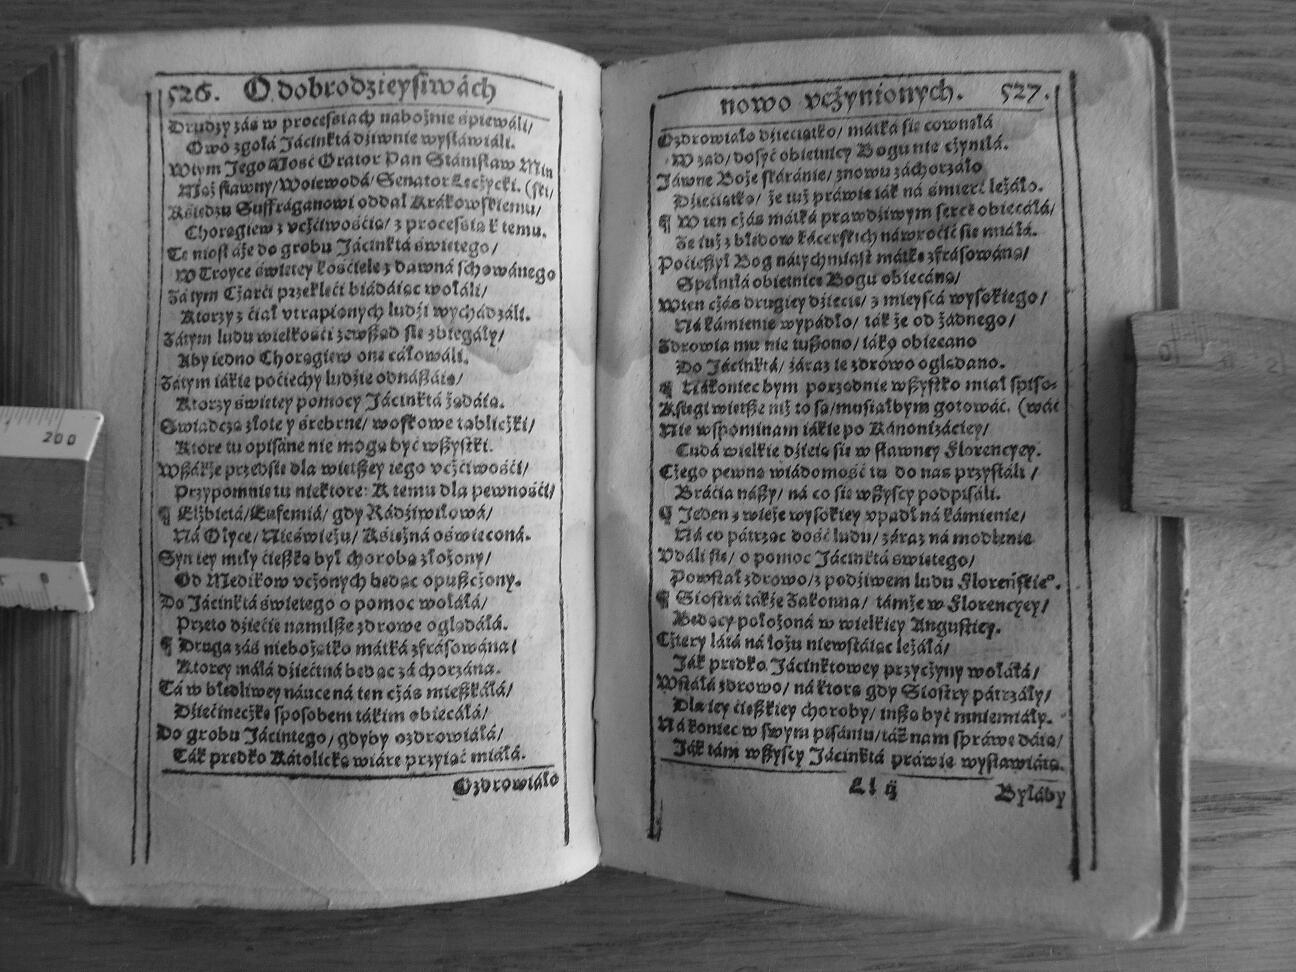 526. O dobrodzieyſtwách
Drudzy zás w proceſsiach nabożnie śpiewáli/
Owo zgołá Jácinktá dziwnie wysławiáli.
Wtym Jego Mość Orator Pan Stániſław Min
Mąż ſławny/ Woiewodá/ Senator Łęczycki. (ſki/
Kśiędzu Suffráganowi oddał Krákowſkiemu/
Chorągiew z vczćiwośćią/ z proceſsią k temu.
Tę nioſł áże do grobu Jácinktá świętego/
W Troyce świętey kośćiele z dawná ſchowánego
Zátym Czárći przeklęći biádáiąc wołáli/
Ktorzy z ćiał vtrapionych ludźi wychádzáli.
Zátym ludu wielkośći zewſząd się zbiegáły/
Aby iedno Chorągiew onę cáłowáli.
Zátym iákie poćiechy ludźie odnáſzáią/
Ktorzy świętey pomocy Jácinktá żądáią.
Swiádczą złote y śrebrne/ woſkowe tabliczki/
Ktore tu opiſáne nie mogą być wſzyſtki.
Wſzákże przedsię dla więtſzey iego vczćiwośći/
Przypomnię tu niektore: K temu dla pewnośći/
¶ Elżbietá/ Eufemia/ gdy Rádźiwiłowá/
Ná Ołyce/ Nieświeżu/ Kśiężná oświecona.
Syn iey miły ćięſzko był chorobą złożony/
Od Medikow vczonych będąc opuſzczony.
Do Jácinktá świętego o pomoc wołáłá/
Przeto dźiećię namilſze zdrowe oglądáłá.
¶ Druga zás niebożątko mátká zfráſowána/
Ktorey máła dźiećiná będąc záchorzána.
Tá w błędliwey náucená ten czás mieſzkáłá/
Dźiećineczkę ſpoſobem tákim obiecáłá/
Do grobu Jácintego/ gdyby ozdrowiáłá/
Ták prędko Kátolicką wiárę przyiąć miáłá.
Ozdrowiáło
nowo vczynionych. 527.
Ozdrowiáło dźiećiątko/ mátká się cownęłá
W zad/ doſyć obietnicy Bogu nie czyniłá.
Jáwne Boże ſkáránie/ znowu záchorzáło
Dźiećiątko/ że iuż práwie iák ná śmierć leżáło.
¶ W ten czás mátká prawdźiwym ſercẽ obiecáłá/
Że iuż z błędow kácerſkich náwroćić się miáłá.
Poćieſzył Bog nátychmiaſt mátkę zfráſowáną/
Spełniłá obietnicę Bogu obiecáną/
W ten czás drugiey dźiećię/ z mieyſcá wyſokiego/
Ná kámienie wypádło/ ták że od żadnego/
Zdrowia mu nie tuſzono/ iáko obiecano
Do Jácinktá/ záraz ie zdrowo oglądano.
¶ Nákoniec bym porządnie wſzyſtko miał ſpiſo-
Kśięgi więtſze niż to są/ muśiałbym gotowáć. (wáć
Nie wſpominam iákie po Kánonizáciey/
Cudá wielkie dźieią się w ſławney Florencyey.
Czego pewną wiádomość tu do nas przyſłáli/
Bráćia náſzy/ ná co się wſzyſcy podpiſáli.
¶ Jeden z wieże wyſokiey vpadł ná kámienie/
Ná co pátrząc dość ludu/ záraz ná modlenie
Vdáli się/ o pomoc Jácinktá świętego/
Powſtał zdrowo/ z podźiwem ludu Floreńſkieº.
¶ Sioſtrá tákże Zakonna/ támże w Florencyey/
Będący położoná w wielkiey Anguſtiey.
Cztery látá ná łożu niewſtáiąc leżáłá/
Ják prędko Jácinktowey przyczyny wołáłá/
Wſtáłá zdrowo/ ná ktorą gdy Sioſtry pátrzáły/
Dla iey ćięſzkiey choroby/ inſzą być mniemáły.
Nákoniec w ſwym piſániu/ ták nam ſpráwę dáią/
Ják tám wſzyſcy Jácinktá práwie wysławiáią.
Ll ij
Byłáby
200
0